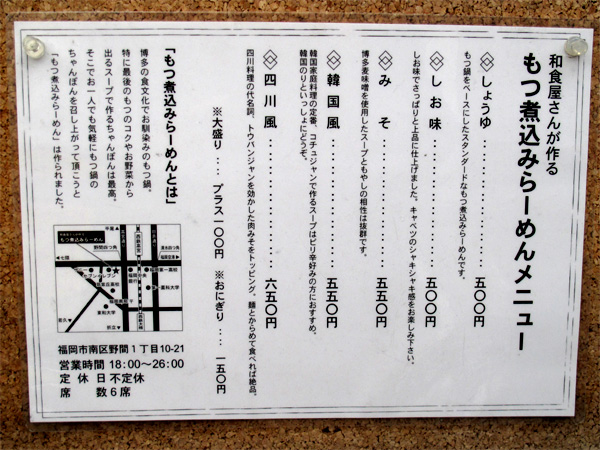 和食屋さんが作る
もつ煮込みらーめんメニュー
◇しょうゆ……………………五〇〇円
もつ鍋をベースにしたスタンダードなもつ煮込みらーめんです。
◇しお味……………………五〇〇円
しお味でさっぱりと上品に仕上げました。キャベツのシャキシャキ感をお楽しみ下さい。
◇みそ……………………五五〇円
博多麦味噌を使用したスープともやしの相性は抜群です。
◇韓国風……………………五五〇円
韓国家庭料理の定番、コチュジャンで作るスープはピリ辛好みの方におすすめ。
韓国のりといっしょにどうぞ。
◇四川風……………………六五〇円
四川料理の代名詞、トウバンジャンを効かした肉みそをトッピング、麺とからめて食べれば絶品。
※大盛り… プラス一〇〇円 ※おにぎり… 一五〇円
「もつ煮込みらーめんとは」
博多の食文化でお馴染みのもつ鍋。
特に最後のもつのコクやお野菜から
出るスープで作るちゃんぽんは最高。
そこでお一人でも気軽にもつ鍋の
ちゃんぽんを召し上がって頂こうと
「もつ煮込みらーめん」は作られました。
もつ煮込みらーめん
野間四ツ角
セブンイレブン
福岡市南区野間1丁目10-21
営業時間 18:00〜26:00
定休日 不定休
席数 6席